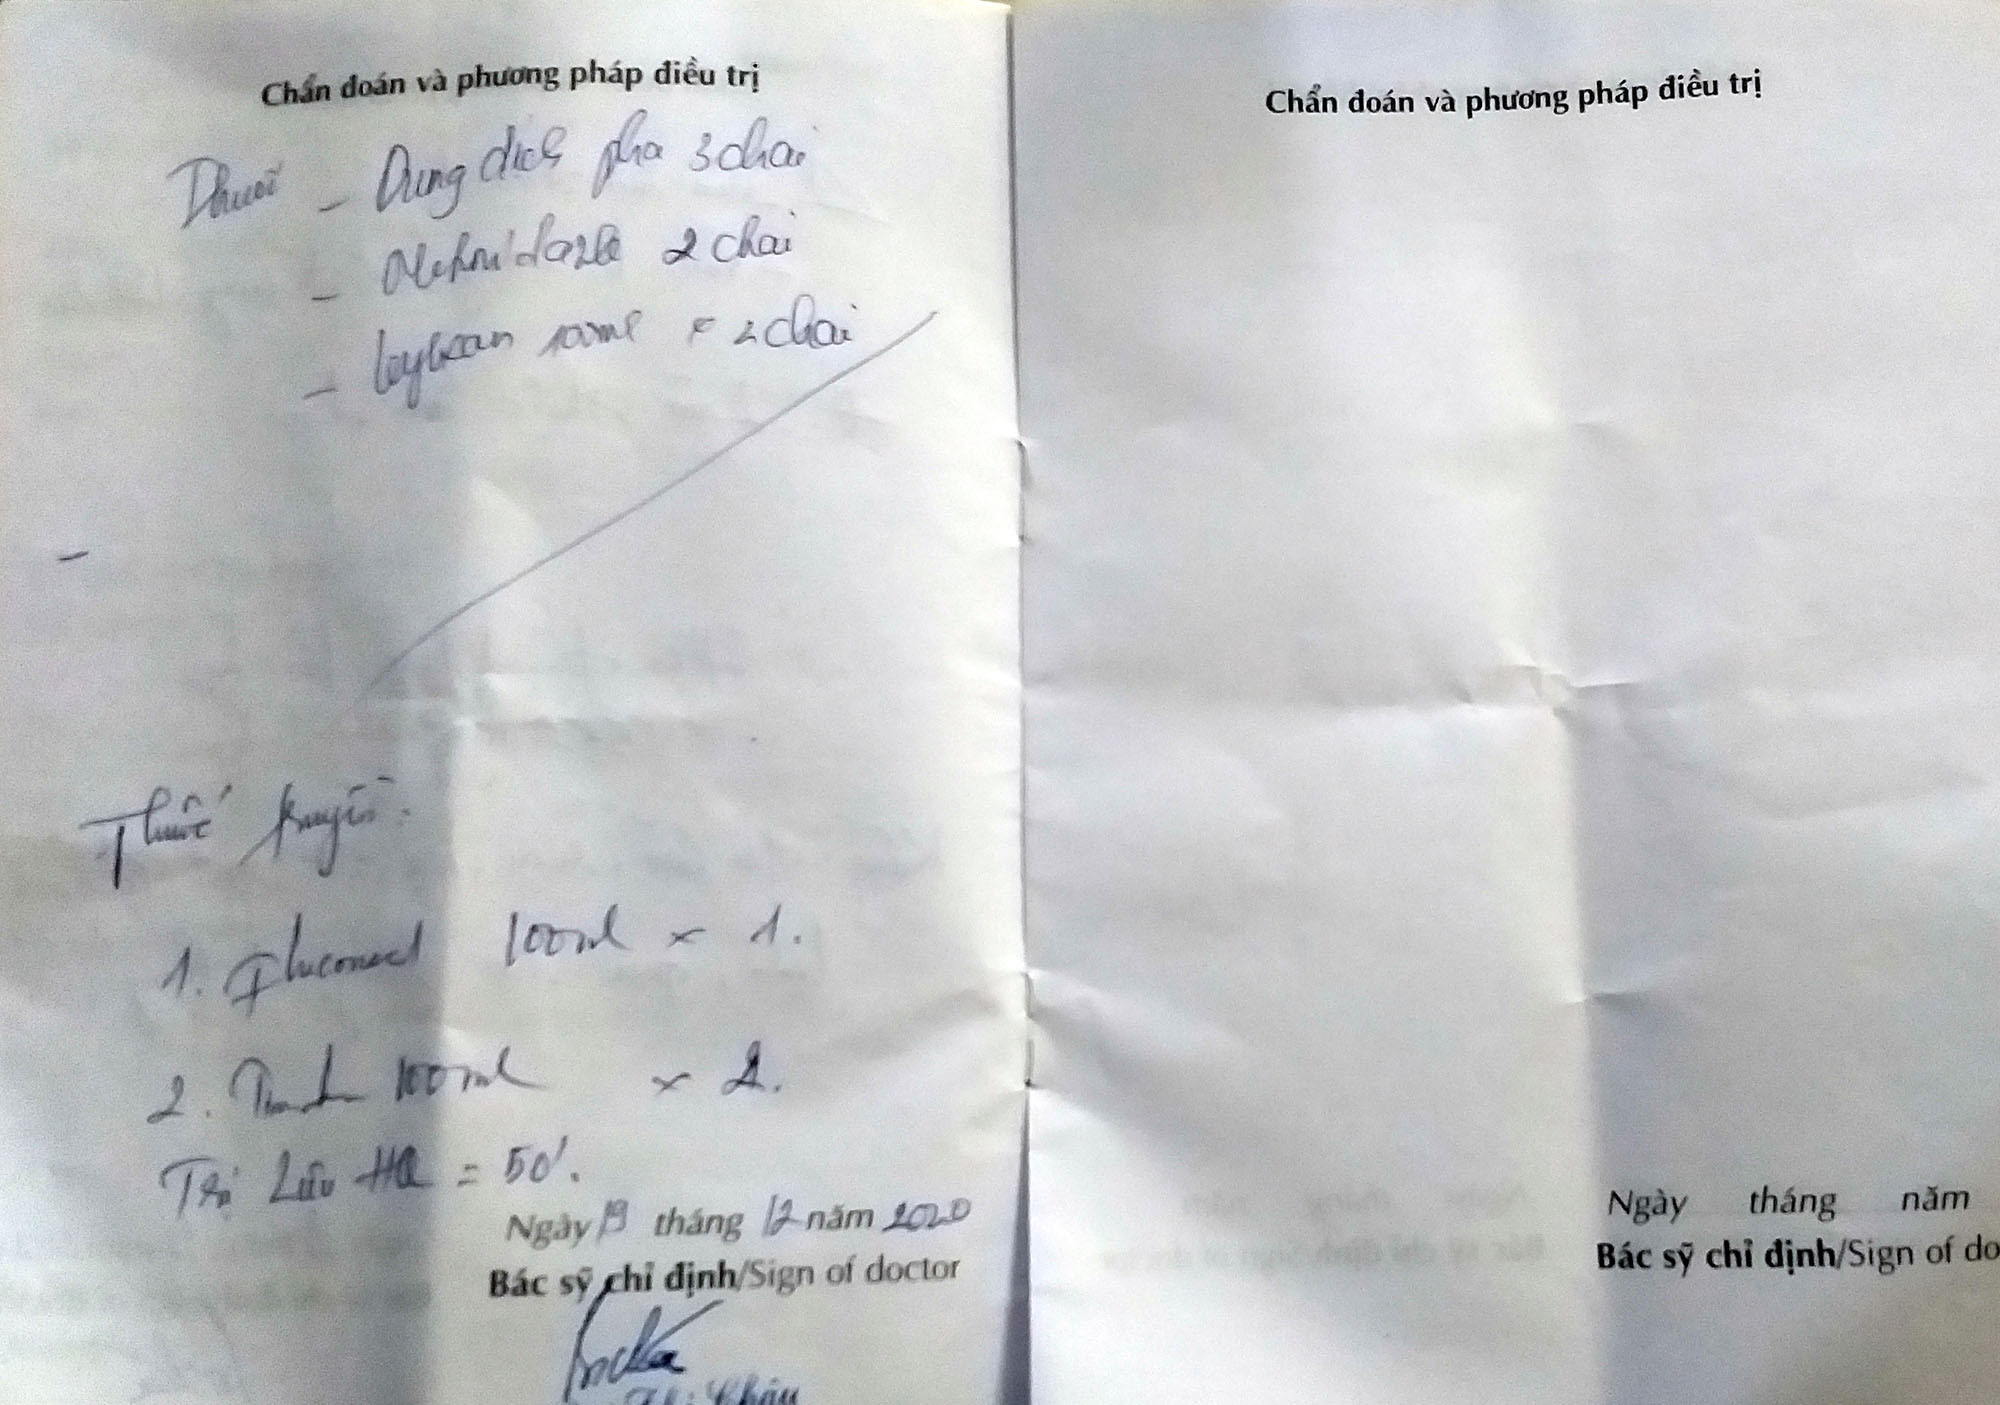 Chẩn đoán và phương pháp điều trị
Thuốc - Dung dịch pha 3 chai
- Metronidazole 2 chai
- 100ml x 2 chai
-
Thuốc truyền:
1. 100ml x 1.
2. 100ml x 2.
Trị Liệu = 50'.
Ngày 19 tháng 12 năm 2020
Bác sỹ chỉ định/Sign of doctor
Chẩn đoán và phương pháp điều trị
Ngày tháng năm
Bác sỹ chỉ định/Sign of do